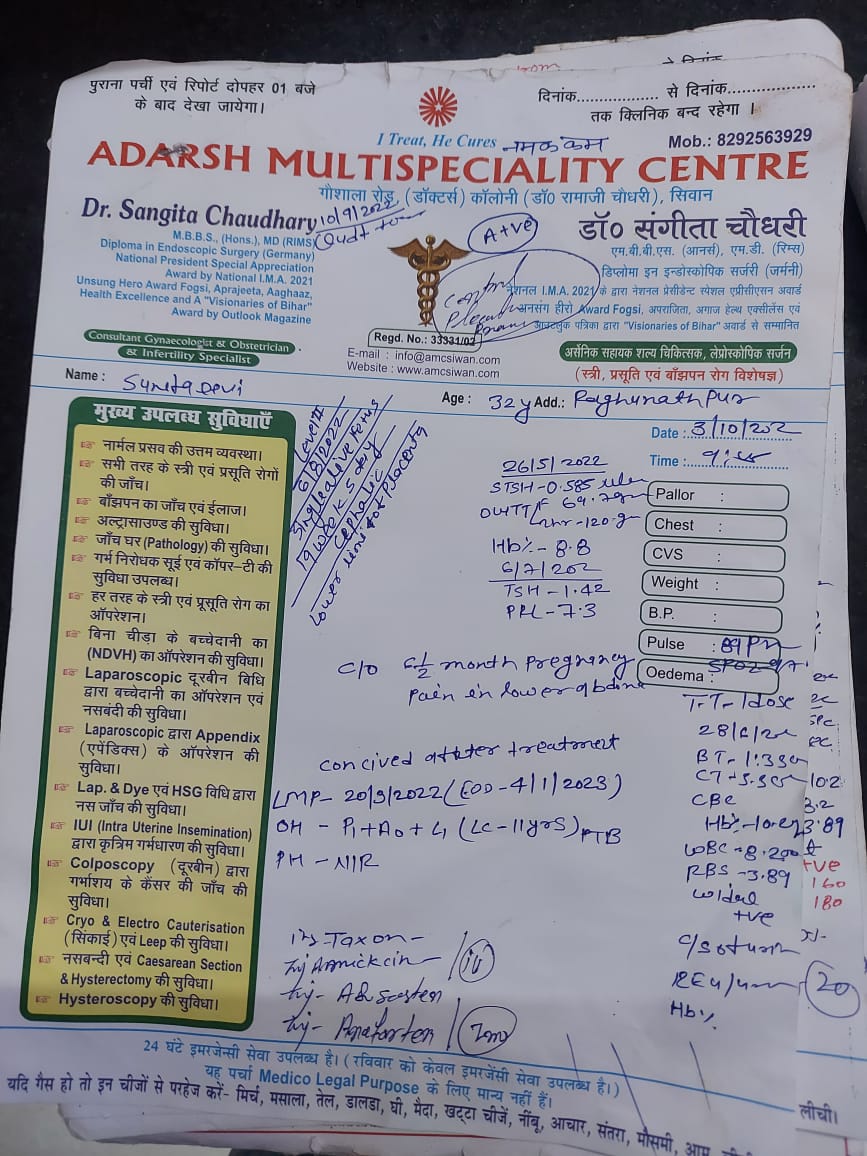 पुराना पर्ची एवं रिपोर्ट दोपहर 01 बजे
के बाद देखा जायेगा।
दिनांक................ से दिनांक..................
तक क्लिनिक बन्द रहेगा ।
I Treat, He Cures
नमक कम
Mob.: 8292563929
ADARSH MULTISPECIALITY CENTRE
गौशाला रोड, (डॉक्टर्स) कॉलोनी (डॉ० रामाजी चौधरी), सिवान
Dr. Sangita Chaudhary
10/9/2022
M.B.B.S., (Hons.), MD (RIMS)
Diploma in Endoscopic Surgery (Germany)
National President Special Appreciation
Award by National I.M.A. 2021
Unsung Hero Award Fogsi, Aprajeeta, Aaghaaz,
Health Excellence and A "Visionaries of Bihar"
Award by Outlook Magazine
Consultant Gynaecologist & Obstetrician
& Infertility Specialist
A+ve
डॉ० संगीता चौधरी
एम.बी.बी.एस. (आनर्स), एम.डी. (रिम्स)
डिप्लोमा इन इन्डोस्कोपिक सर्जरी (जर्मनी)
नेशनल I.M.A. 2021 के द्वारा नेशनल प्रेसीडेन्ट स्पेशल एप्रीसीएसन अवार्ड
अनसंग हीरो Award Fogsi, अपराजिता, अगाज हेल्थ एक्सीलेंस एवं
आउटलुक पत्रिका द्वारा "Visionaries of Bihar" अवार्ड से सम्मानित
Regd. No.: 33331/02
E-mail : info@amcsiwan.com
Website : www.amcsiwan.com
असैनिक सहायक शल्य चिकित्सक, लेप्रोस्कोपिक सर्जन
(स्त्री, प्रसूति एवं बाँझपन रोग विशेषज्ञ)
Name : Sunita Devi
Age : 32y Add.: Raghunathpur
Date : 3/10/202
Time :
मुख्य उपलब्ध सुविधाएँ
नार्मल प्रसव की उत्तम व्यवस्था।
सभी तरह के स्त्री एवं प्रसूति रोगों
की जाँच।
बाँझपन का जाँच एवं ईलाज।
अल्ट्रासाउण्ड की सुविधा।
जाँच घर (Pathology) की सुविधा।
गर्भ निरोधक सूई एवं कॉपर–टी की
सुविधा उपलब्ध।
हर तरह के स्त्री एवं प्रसूति रोग का
ऑपरेशन।
बिना चीड़ा के बच्चेदानी का
(NDVH) का ऑपरेशन की सुविधा।
Laparoscopic दूरबीन विधि
द्वारा बच्चेदानी का ऑपरेशन एवं
नसबंदी की सुविधा।
Laparoscopic द्वारा Appendix
(एपेंडिक्स) के ऑपरेशन की
सुविधा।
Lap. & Dye एवं HSG विधि द्वारा
नस जाँच की सुविधा।
IUI (Intra Uterine Insemination)
द्वारा कृत्रिम गर्भधारण की सुविधा।
Colposcopy (दूरबीन) द्वारा
गर्भाशय के कैंसर की जाँच की
सुविधा।
Cryo & Electro Cauterisation
(सिंकाई) एवं Leep की सुविधा।
नसबन्दी एवं Caesarean Section
& Hysterectomy की सुविधा।
Hysteroscopy की सुविधा।
Level II
6/8/2022
Single alive fetus
19 week 5 day
cephalic
26/5/2022
STSH-0.585
2hr-120
Hb%- 8.8
6/7/202
TSH-1.42
PRL-7.3
Pallor :
Chest :
CVS :
Weight :
B.P. :
Pulse : 89
Oedema :
C/O 6½ month pregnancy
Pain in lower
concived treatment
LMP- 20/3/2022 (EDD-4/1/2023)
OH - P1+A0+L1 (LC-11yrs) FTB
PH-
T.T- 1dose
BT-
CT-
CBC
Hb%-
WBC-8.200
RBS-3.89
widal
+ve
Hb%
Inj- Taxon-
20
10.2
3.2
3.89
+ve
160
180
24 घंटे इमरजेन्सी सेवा उपलब्ध है। ( रविवार को केवल इमरजेंसी सेवा उपलब्ध है। )
यह पर्चा Medico Legal Purpose के लिए मान्य नहीं हैं।
यदि गैस हो तो इन चीजों से परहेज करें- मिर्च, मसाला, तेल, डालडा, घी, मैदा, खट्टा चीजें, नींबू, आचार, संतरा, मौसमी, आम,
लीची।